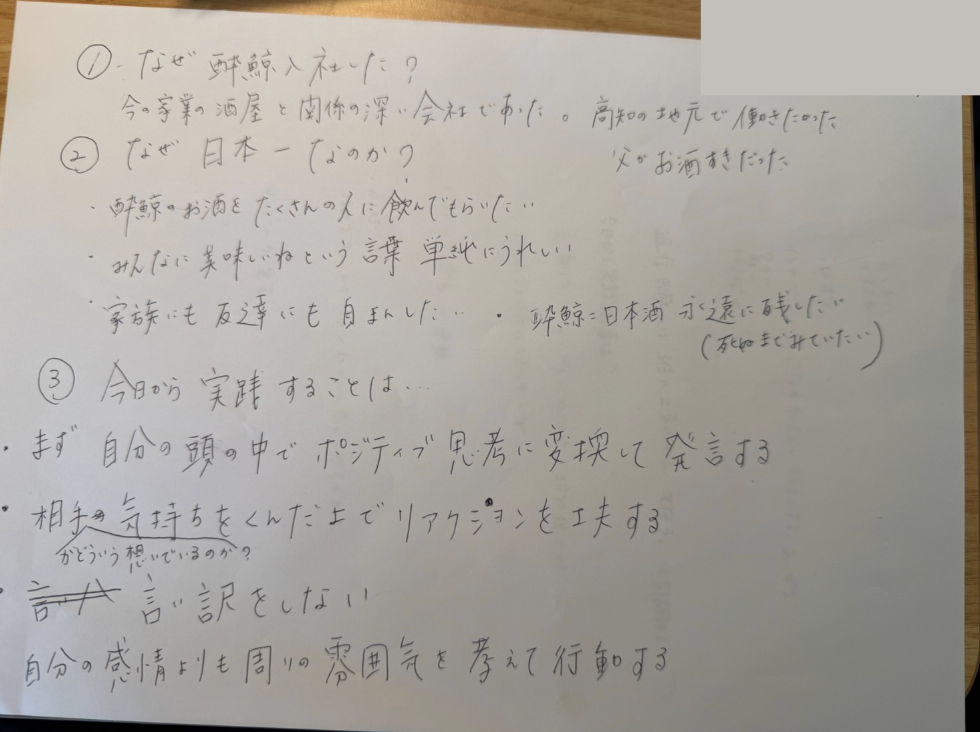 ① なぜ 酔鯨入社した?
今の家業の酒屋と関係の深い会社であった。 高知の地元で働きたかった
父がお酒すきだった
② なぜ 日本一なのか?
・酔鯨のお酒をたくさんの人に飲んでもらいたい…
・みんなに美味しいねという言葉 単純にうれしい
・家族にも友達にも自まんした… ・酔鯨=日本酒 永遠に残したい…
(死ぬまでみていたい)
③ 今日から実践することは…
・まず 自分の頭の中でポジティブ思考に変換して発言する
・相手の気持ちをくんだ上でリアクションを工夫する
がどういう想いでいるのか?
・言い訳をしない
自分の感情よりも周りの雰囲気を考えて行動する